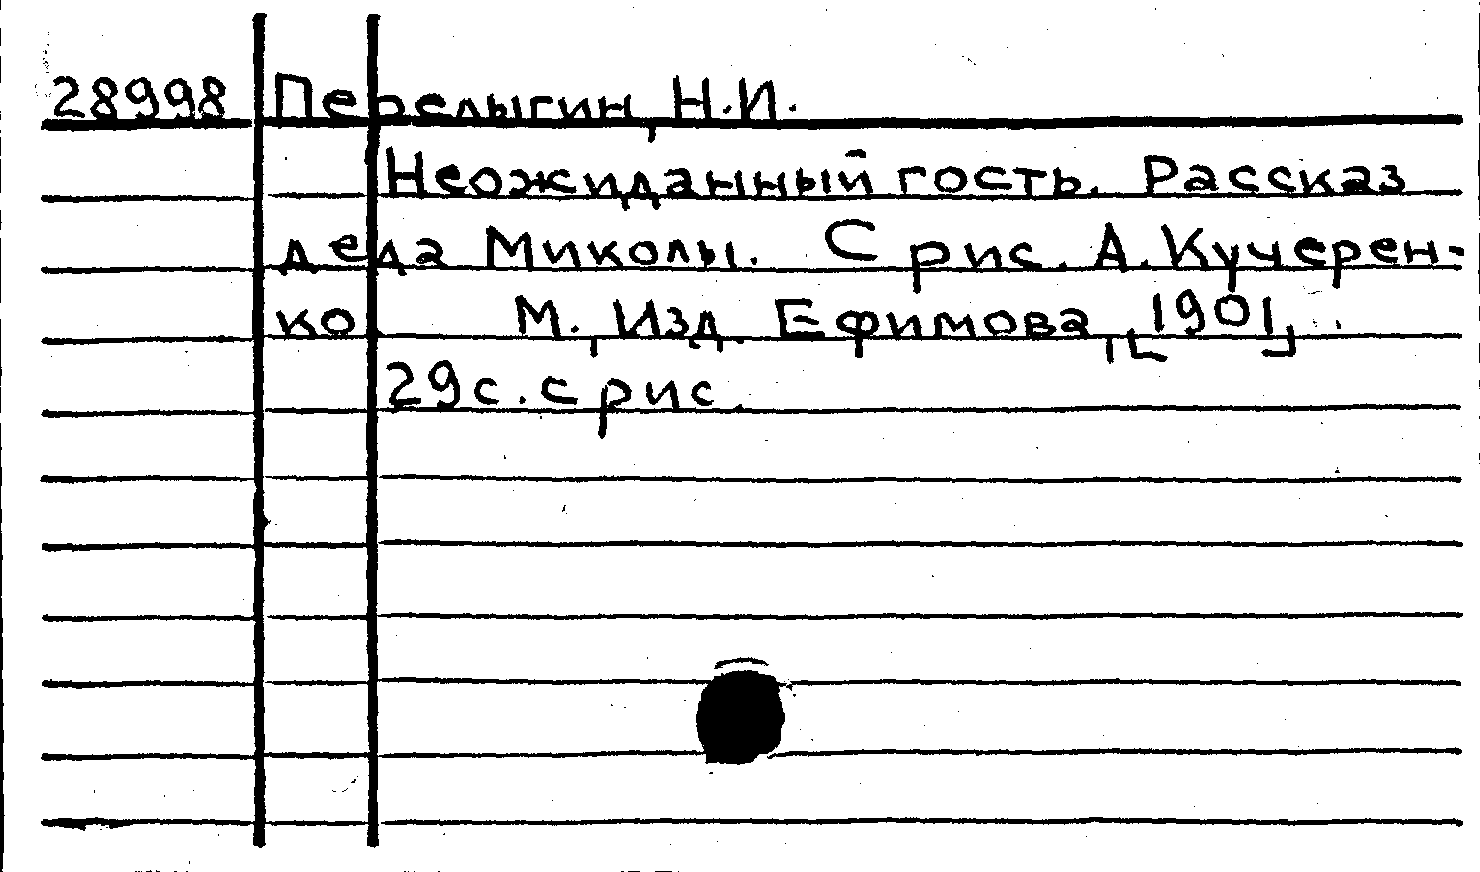 28998 Перелыгин, Н.И.
Неожиданный гость. Рассказ
деда Миколы. С рис. А. Кучерен-
ко М., Изд. Ефимова, [1901].
29 с. с рис.